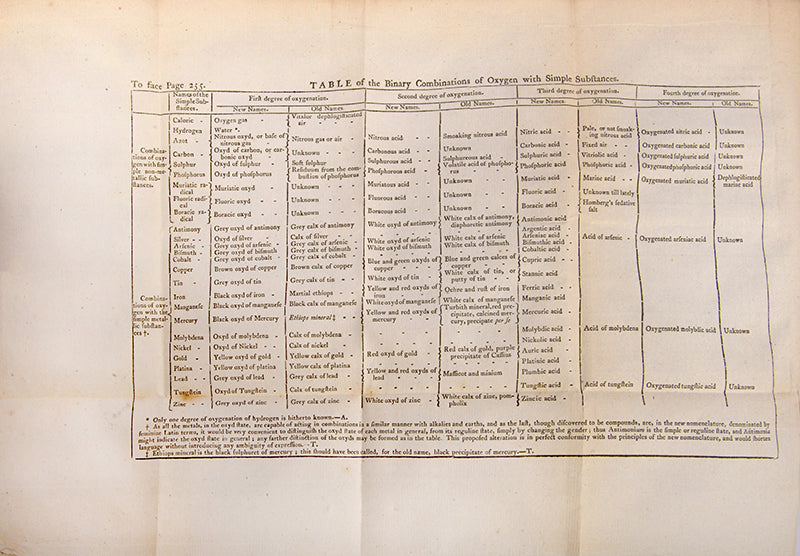 To face Page 255.
TABLE of the Binary Combinations of Oxygen with Simple Subſtances.
Names of the Simple Subſtances.
Firſt degree of oxygenation.
Second degree of oxygenation.
Third degree of oxygenation.
Fourth degree of oxygenation.
New Names. Old Names. New Names. Old Names. New Names. Old Names. New Names. Old Names.
Combinations of oxygen with ſimple non-metallic ſubſtances.
Caloric - Oxygen gas - Vital or dephlogiſticated air
Hydrogen Water *.
Azot - Nitrous oxyd, or baſe of nitrous gas Nitrous gas or air - - Nitrous acid Smoaking nitrous acid Nitric acid - Pale, or not ſmoaking nitrous acid Oxygenated nitric acid - Unknown
Carbon - Oxyd of carbon, or carbonic oxyd Unknown - - Carbonous acid - Unknown Carbonic acid - Fixed air - - Oxygenated carbonic acid Unknown
Sulphur Oxyd of ſulphur - - Soft ſulphur Sulphurous acid - Sulphureous acid Sulphuric acid - Vitriolic acid - Oxygenated ſulphuric acid Unknown
Phoſphorus Oxyd of phoſphorus Reſiduum from the combuſtion of phoſphorus Phoſphorous acid Volatile acid of phoſphorus Phoſphoric acid Phoſphoric acid Oxygenated phoſphoric acid Unknown
Muriatic radical Muriatic oxyd Unknown - - Muriatous acid Unknown Muriatic acid - Marine acid - - Oxygenated muriatic acid Dephlogiſticated marine acid
Fluoric radical Fluoric oxyd Unknown - - - Fluorous acid - Unknown Fluoric acid - Unknown till lately
Boracic radical Boracic oxyd Unknown - - - Boracous acid - Unknown Boracic acid - Homberg's ſedative ſalt
Combinations of oxygen with the ſimple metallic ſubſtances †.
Antimony Grey oxyd of antimony Grey calx of antimony White oxyd of antimony White calx of antimony, diaphoretic antimony Antimonic acid
Silver - - Oxyd of ſilver - - Calx of ſilver - - Argentic acid
Arſenic - Grey oxyd of arſenic - Grey calx of arſenic - White oxyd of arſenic White calx of arſenic Arſeniac acid - Acid of arſenic - Oxygenated arſeniac acid Unknown
Biſmuth - Grey oxyd of biſmuth - Grey calx of biſmuth - White oxyd of biſmuth White calx of biſmuth Biſmuthic acid
Cobalt - Grey oxyd of cobalt - Grey calx of cobalt - Cobaltic acid
Copper Brown oxyd of copper Brown calx of copper Blue and green oxyds of copper Blue and green calces of copper Cupric acid - -
Tin - - Grey oxyd of tin Grey calx of tin - - White oxyd of tin - White calx of tin, or putty of tin - Stannic acid
Iron Black oxyd of iron - Martial ethiops - - Yellow and red oxyds of iron Ochre and ruſt of iron Ferric acid - -
Manganeſe Black oxyd of manganeſe Black calx of manganeſe White oxyd of manganeſe White calx of manganeſe Manganic acid
Mercury Black oxyd of Mercury Ethiops mineral‡ - - Yellow and red oxyds of mercury Turbith mineral, red precipitate, calcined mercury, precipate per ſe Mercuric acid -
Molybdena Oxyd of molybdena Calx of molybdena Molybdic acid - Acid of molybdena Oxygenated molybic acid Unknown
Nickel - Oxyd of Nickel - - Calx of nickel Nickolic acid
Gold - Yellow oxyd of gold - Yellow calx of gold - Red oxyd of gold Red calx of gold, purple precipitate of Caſſius Auric acid
Platina - Yellow oxyd of platina Yellow calx of platina Platinic acid
Lead - - Grey oxyd of lead Grey calx of lead Yellow and red oxyds of lead Maſſicot and minium Plumbic acid
Tungſtein Oxyd of Tungſtein - Calx of tungſtein Tungſtic acid - Acid of tungſtein Oxygenated tungſtic acid Unknown
Zinc - - Grey oxyd of zinc - Grey calx of zinc - White oxyd of zinc - White calx of zinc, pompholix Zincic acid -
* Only one degree of oxygenation of hydrogen is hitherto known.—A.
† As all the metals, in the oxyd ſtate, are capable of acting in combinations in a ſimilar manner with alkalies and earths, and as the laſt, though diſcovered to be compounds, are, in the new nomenclature, denominated by
feminine Latin terms, it would be very convenient to diſtinguiſh the oxyd ſtate of each metal in general, from its reguline ſtate, ſimply by changing the gender; thus Antimonium is the ſimple or reguline ſtate, and Antimonia
might indicate the oxyd ſtate in general; any farther diſtinction of the oxyds may be formed as in the table. This propoſed alteration is in perfect conformity with the principles of the new nomenclature, and would ſhorten
language without introducing any ambiguity of expreſſion.—T.
‡ Ethiops mineral is the black ſulphuret of mercury; this ſhould have been called, for the old name, black precipitate of mercury.—T.